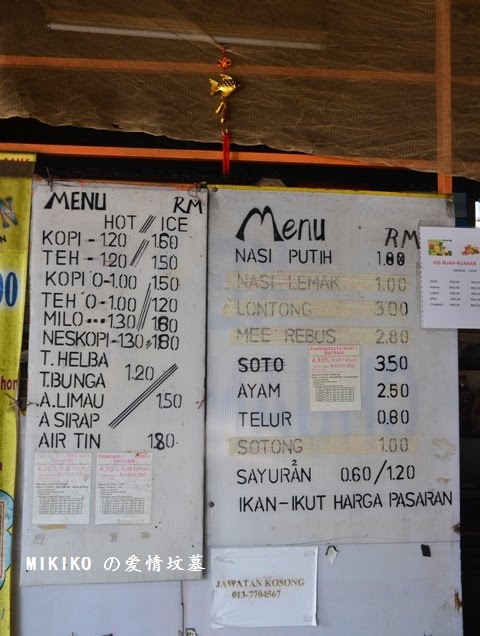 MENU
RM
HOT // ICE
KOPI - 1.20 // 1.60
TEH - 1.20 // 1.50
KOPI O - 1.00 // 1.50
TEH O - 1.00 // 1.20
MILO ... 1.30 // 1.60
NESKOPI - 1.30 // 1.80
T. HELBA
T. BUNGA 1.20
A. LIMAU 1.50
A SIRAP
AIR TIN 1.80
Menu
RM
NASI PUTIH 1.00
NASI LEMAK 1.00
LONTONG 3.00
MEE REBUS 2.80
SOTO 3.50
AYAM 2.50
TELUR 0.80
SOTONG 1.00
SAYURAN2 0.60/1.20
IKAN-IKUT HARGA PASARAN
JUS BUAH-BUAHAN
JAWATAN KOSONG
013-7704567
MIKIKO の愛情坟墓